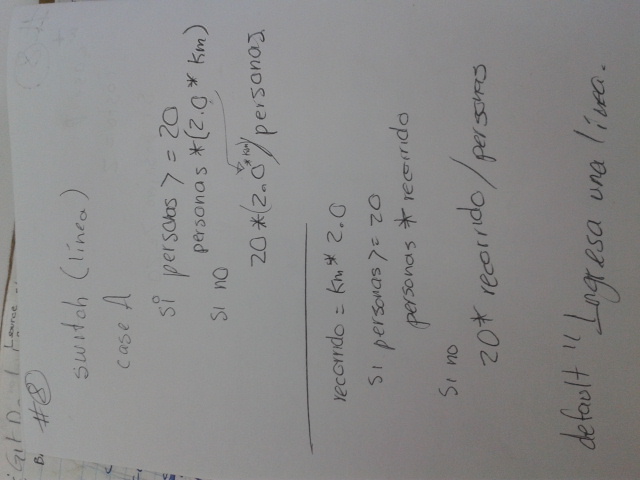 Git D
Source
B.
#8
switch (línea)
case A
si personas >= 20
personas * (2.0 * km)
si no
20 * (2.0 * km) / personas
recorrido = km * 2.0
si personas >= 20
personas * recorrido
si no
20 * recorrido / personas
default "Ingresa una línea.